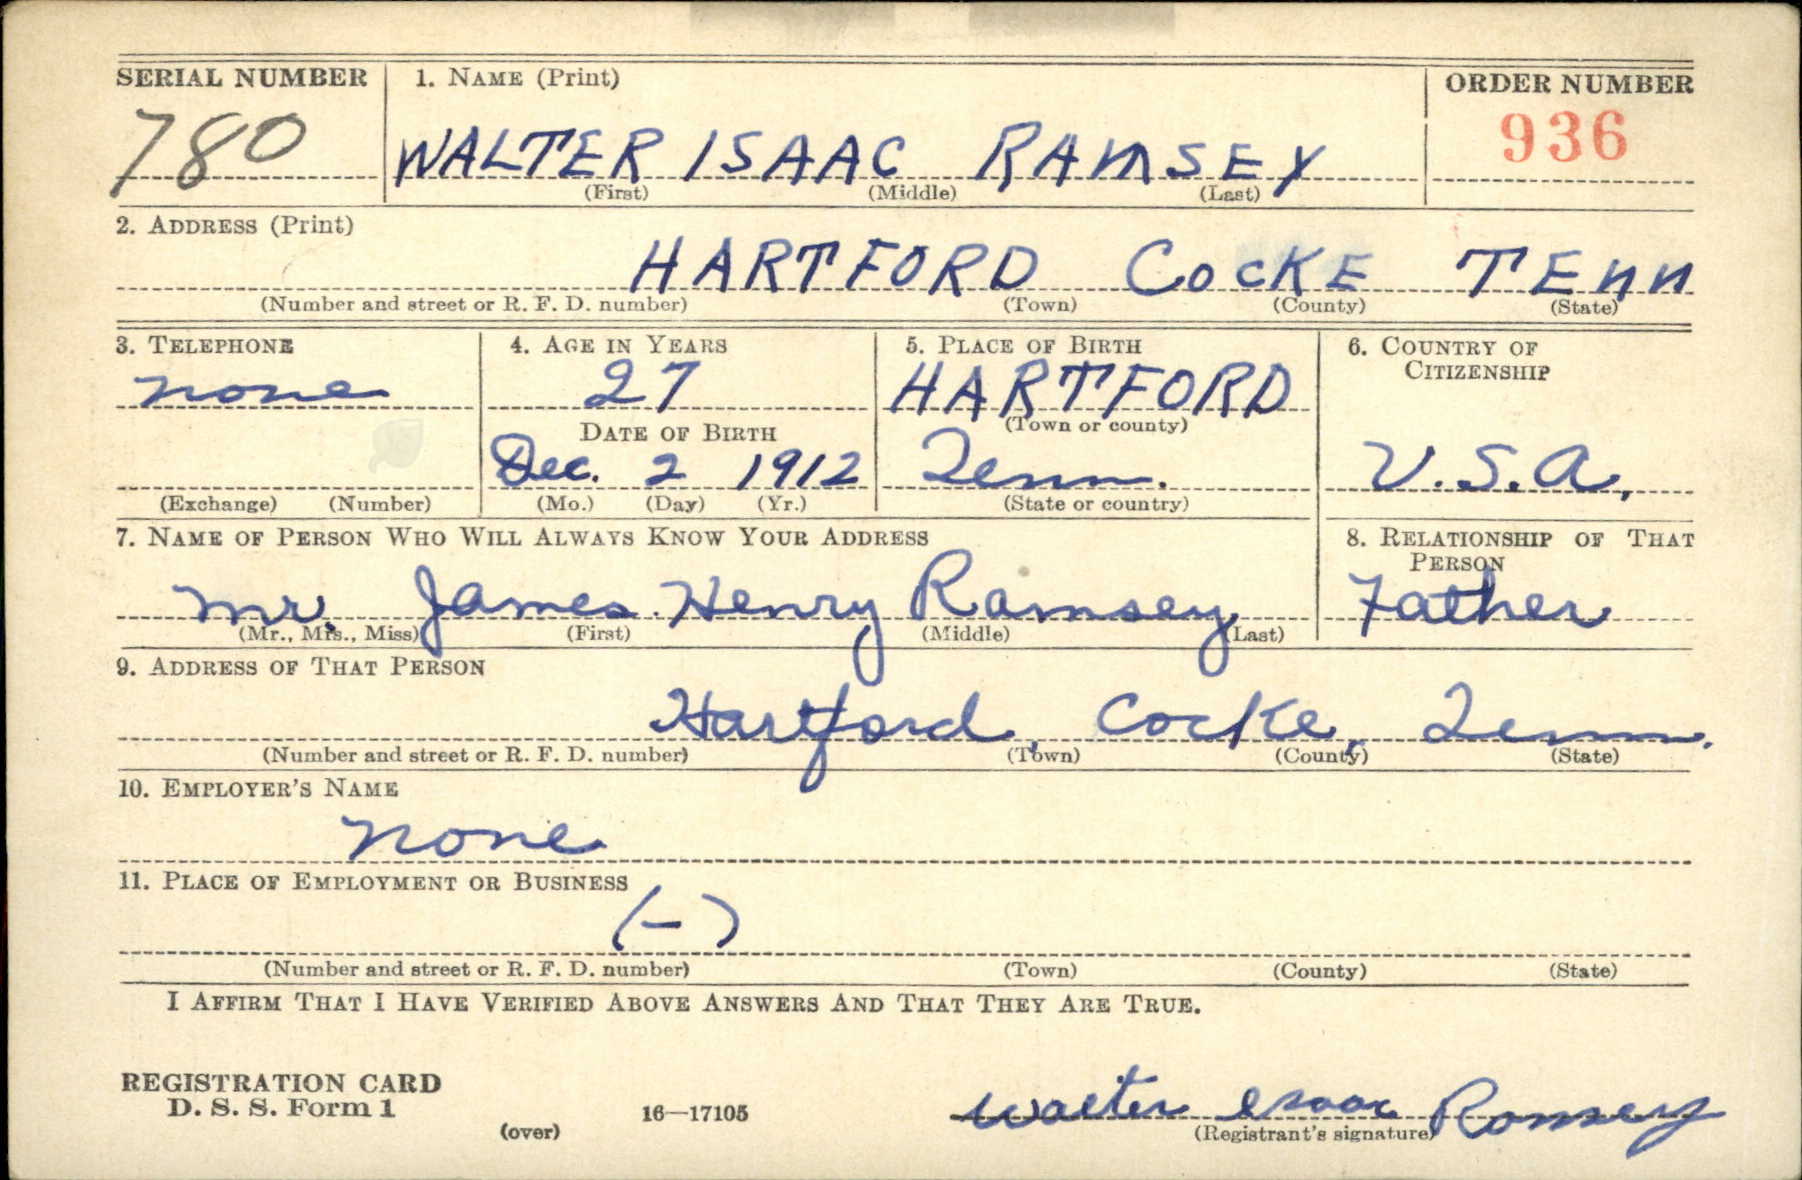 SERIAL NUMBER 1. NAME (Print) ORDER NUMBER
780 WALTER ISAAC RAMSEY 936
(First) (Middle) (Last)
2. ADDRESS (Print)
HARTFORD COCKE TENN
(Number and street or R. F. D. number) (Town) (County) (State)
3. TELEPHONE 4. AGE IN YEARS 5. PLACE OF BIRTH 6. COUNTRY OF
CITIZENSHIP
none 27 HARTFORD
DATE OF BIRTH (Town or county)
Dec. 2 1912 Tenn. U.S.A.
(Exchange) (Number) (Mo.) (Day) (Yr.) (State or country)
7. NAME OF PERSON WHO WILL ALWAYS KNOW YOUR ADDRESS 8. RELATIONSHIP OF THAT
PERSON
Mr. James Henry Ramsey Father
(Mr., Mrs., Miss) (First) (Middle) (Last)
9. ADDRESS OF THAT PERSON
Hartford, Cocke, Tenn.
(Number and street or R. F. D. number) (Town) (County) (State)
10. EMPLOYER'S NAME
none
11. PLACE OF EMPLOYMENT OR BUSINESS
(-)
(Number and street or R. F. D. number) (Town) (County) (State)
I AFFIRM THAT I HAVE VERIFIED ABOVE ANSWERS AND THAT THEY ARE TRUE.
REGISTRATION CARD
D. S. S. Form 1 16—17105 Walter Isaac Ramsey
(over) (Registrant's signature)